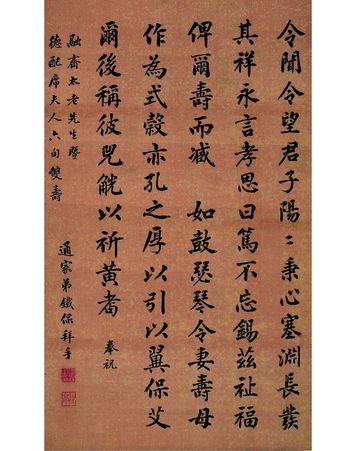 令聞令望君子陽〻秉心塞淵長發
其祥永言孝思曰篤不忘錫茲祉福
俾爾壽而臧　如鼓瑟琴令妻壽母
作為式穀亦孔之厚以引以翼保艾
爾後稱彼兕觥以祈黃耇　奉祝
融齋太老先生暨
德配席夫人六旬雙壽
通家弟鐵保拜手